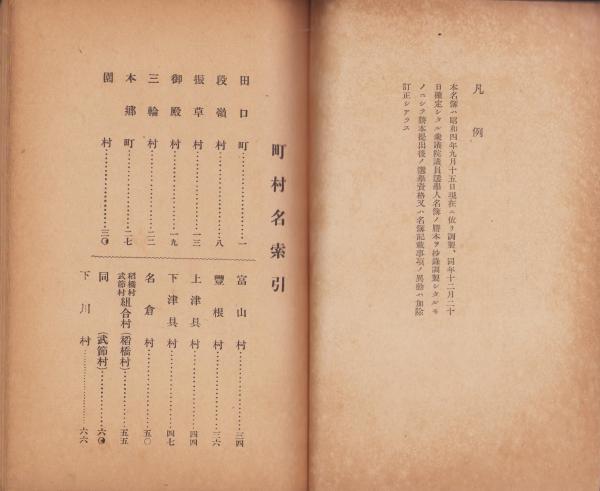 凡例
本名簿ハ昭和四年九月十五日現在ニ依リ調製、同年十二月二十
日確定シタル衆議院議員選擧人名簿ノ謄本ヲ抄錄調製シタルモ
ノニシテ謄本提出後ノ選擧資格又ハ名簿記載事項ノ異動ハ加除
訂正シアラス
町村名索引
田口町…………一
段嶺村…………八
振草村…………一三
御殿村…………一九
三輪村…………二二
本鄕町…………二七
園村…………三〇
富山村…………三四
豐根村…………三六
上津具村…………四四
下津具村…………四七
名倉村…………五〇
稻橋村武節村組合村(稻橋村)…………五五
同(武節村)…………六〇
下川村…………六六